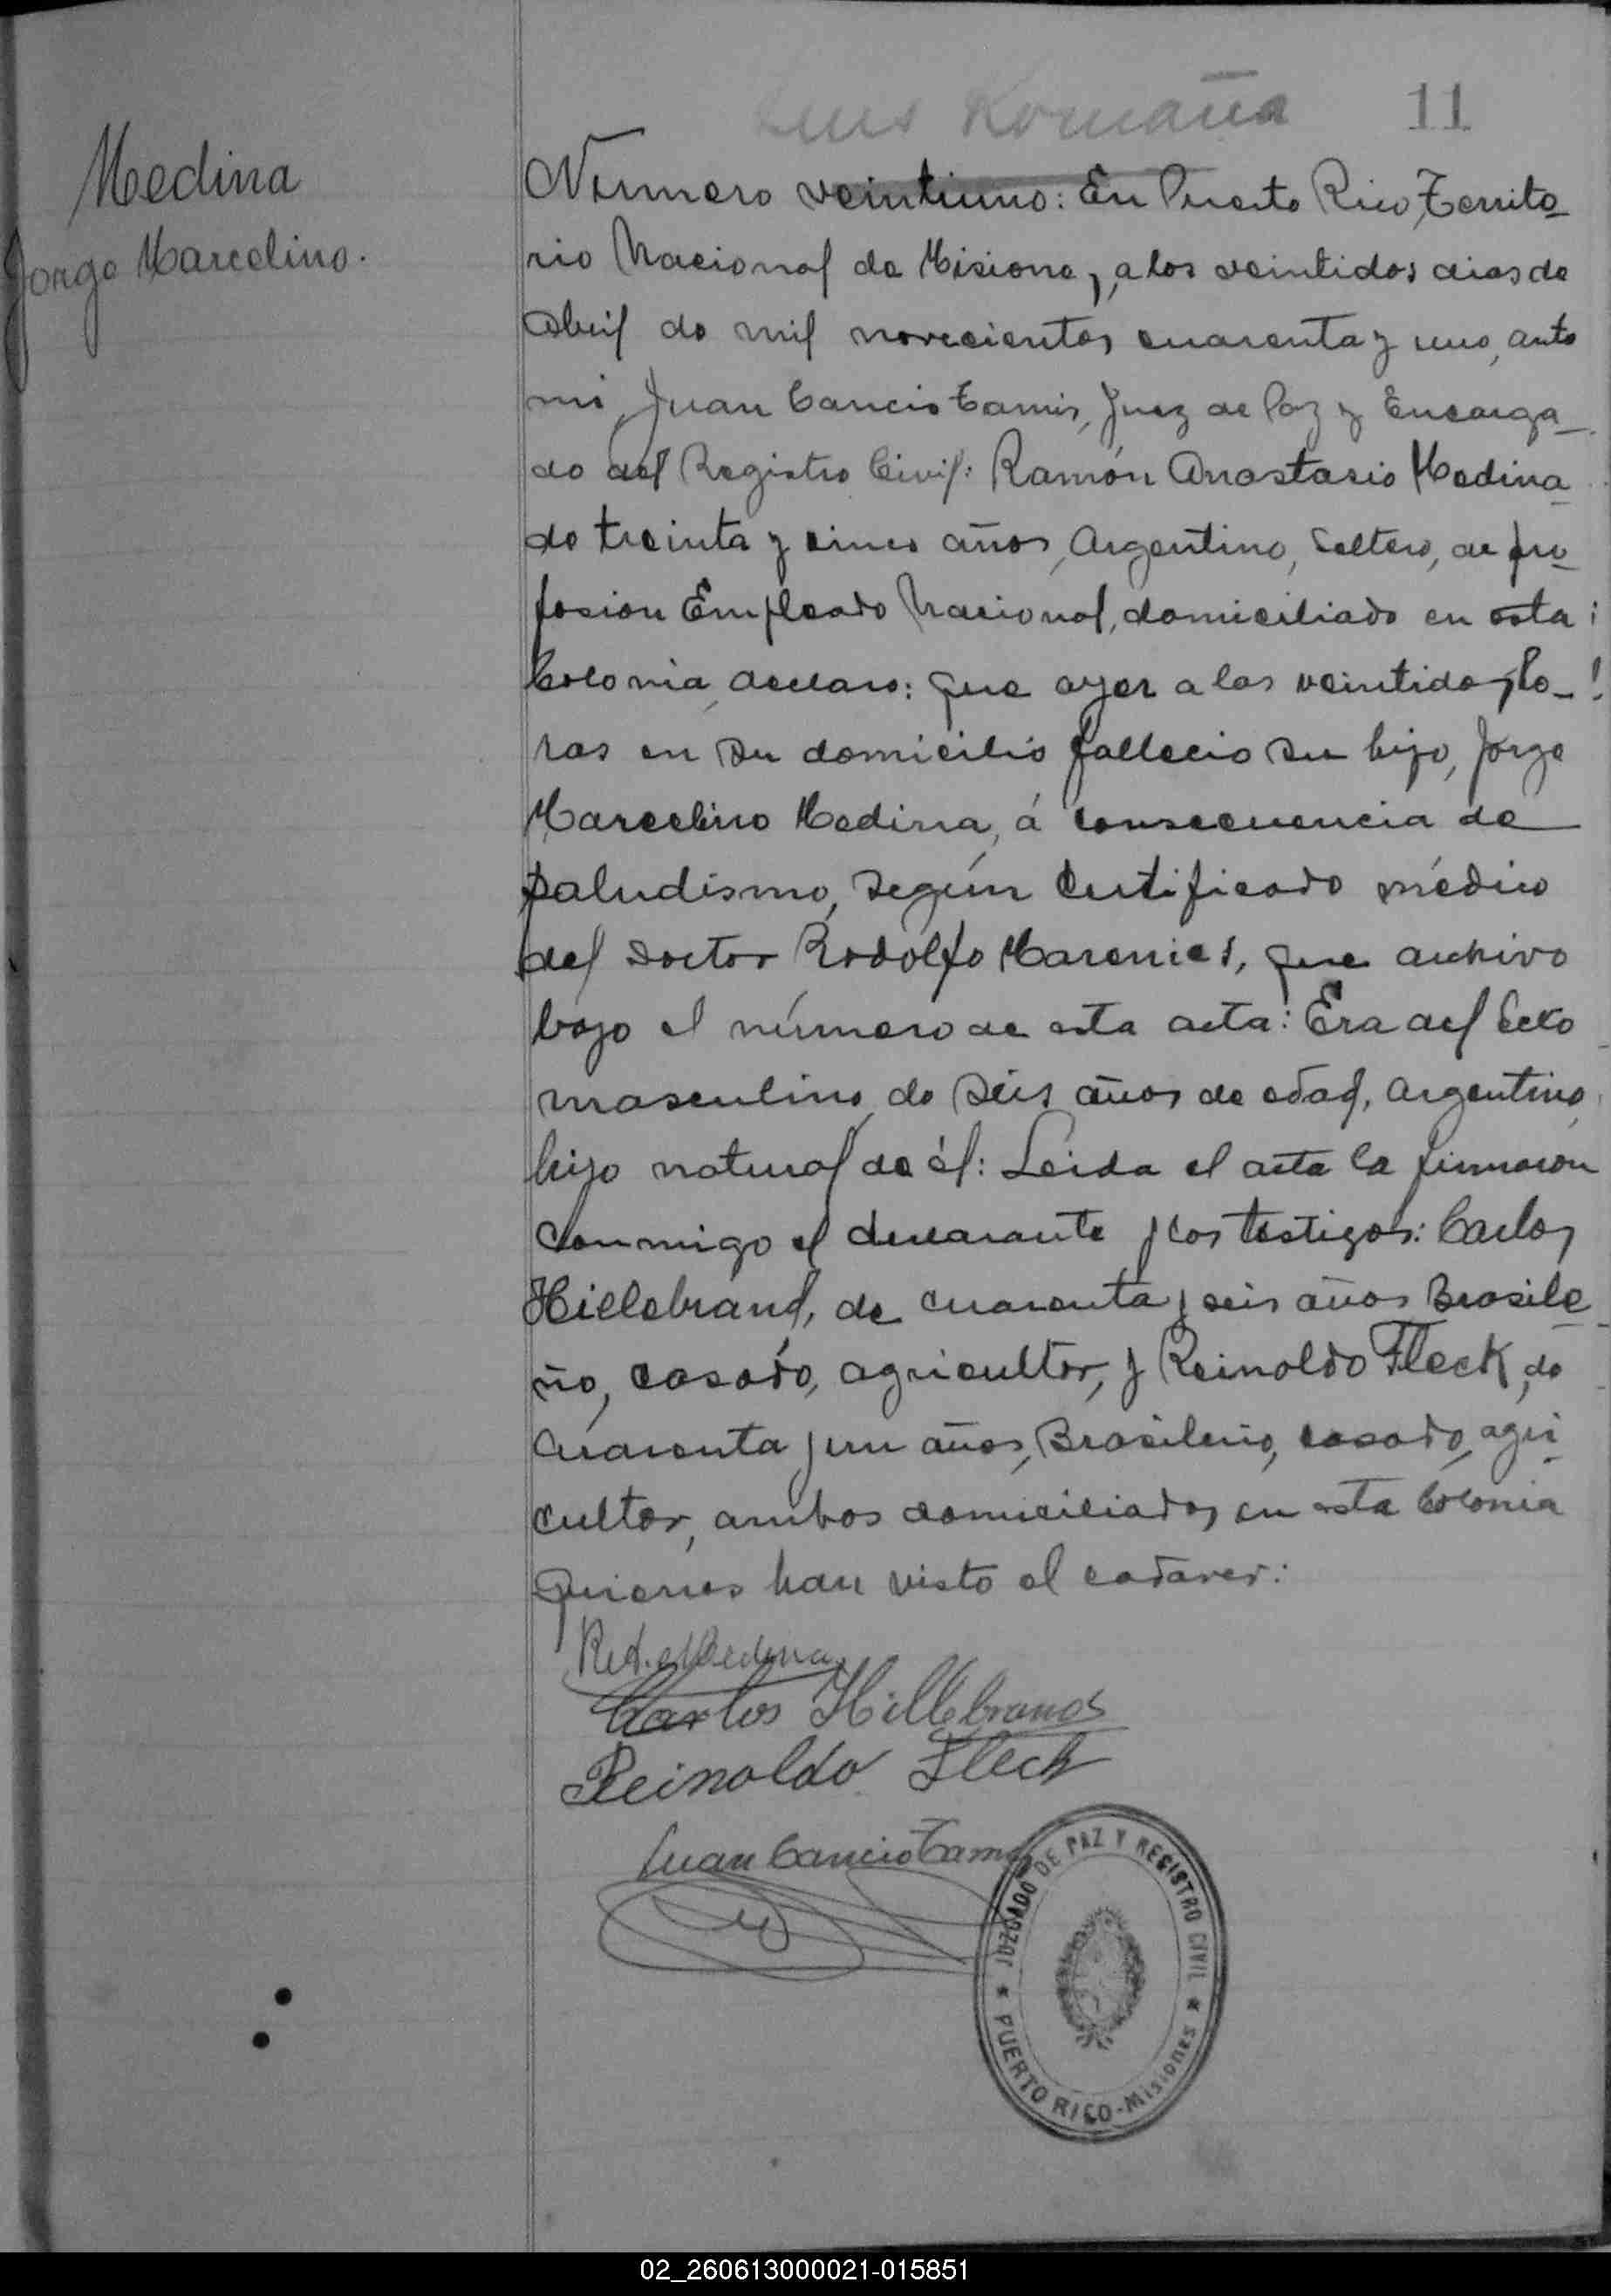 Luis Romaña
11
Medina
Jorge Marcelino.
Número veintiuno: En Puerto Rico, Territo_
rio Nacional de Misiones, a los veintidos dias de
Abril de mil novecientos cuarenta y uno, ante
mi, Juan Cancio Tamis, Juez de Paz y Encarga_
do del Registro Civil: Ramón Anastasio Medina
de treinta y cinco años, Argentino, Soltero, de pro_
fesion Empleado Nacional, domiciliado en esta
Colonia, declaro: que ayer a las veintidos ho_
ras en su domicilio fallecio su hijo, Jorge
Marcelino Medina, á consecuencia de
paludismo, según Certificado médico
del Doctor Rodolfo, que archivo
bajo el número de esta acta: Era del Sexo
masculino, de seis años de edad, argentino,
hijo natural de él: Leida el acta la firmaron
conmigo el declarante y los testigos: Carlos
Hillebrand, de cuarenta y seis años Brasile_
ño, casado, agricultor, y Reinoldo Fleck, de
cuarenta y un años, Brasileño, casado, agri_
cultor, ambos domiciliados en esta Colonia
quienes han visto el cadaver:
R. A. Medina
Carlos Hillebrand
Reinoldo Fleck
Juan Cancio Tamis
JUZGADO DE PAZ Y REGISTRO CIVIL
★ PUERTO RICO - Misiones ★
02_260613000021-015851